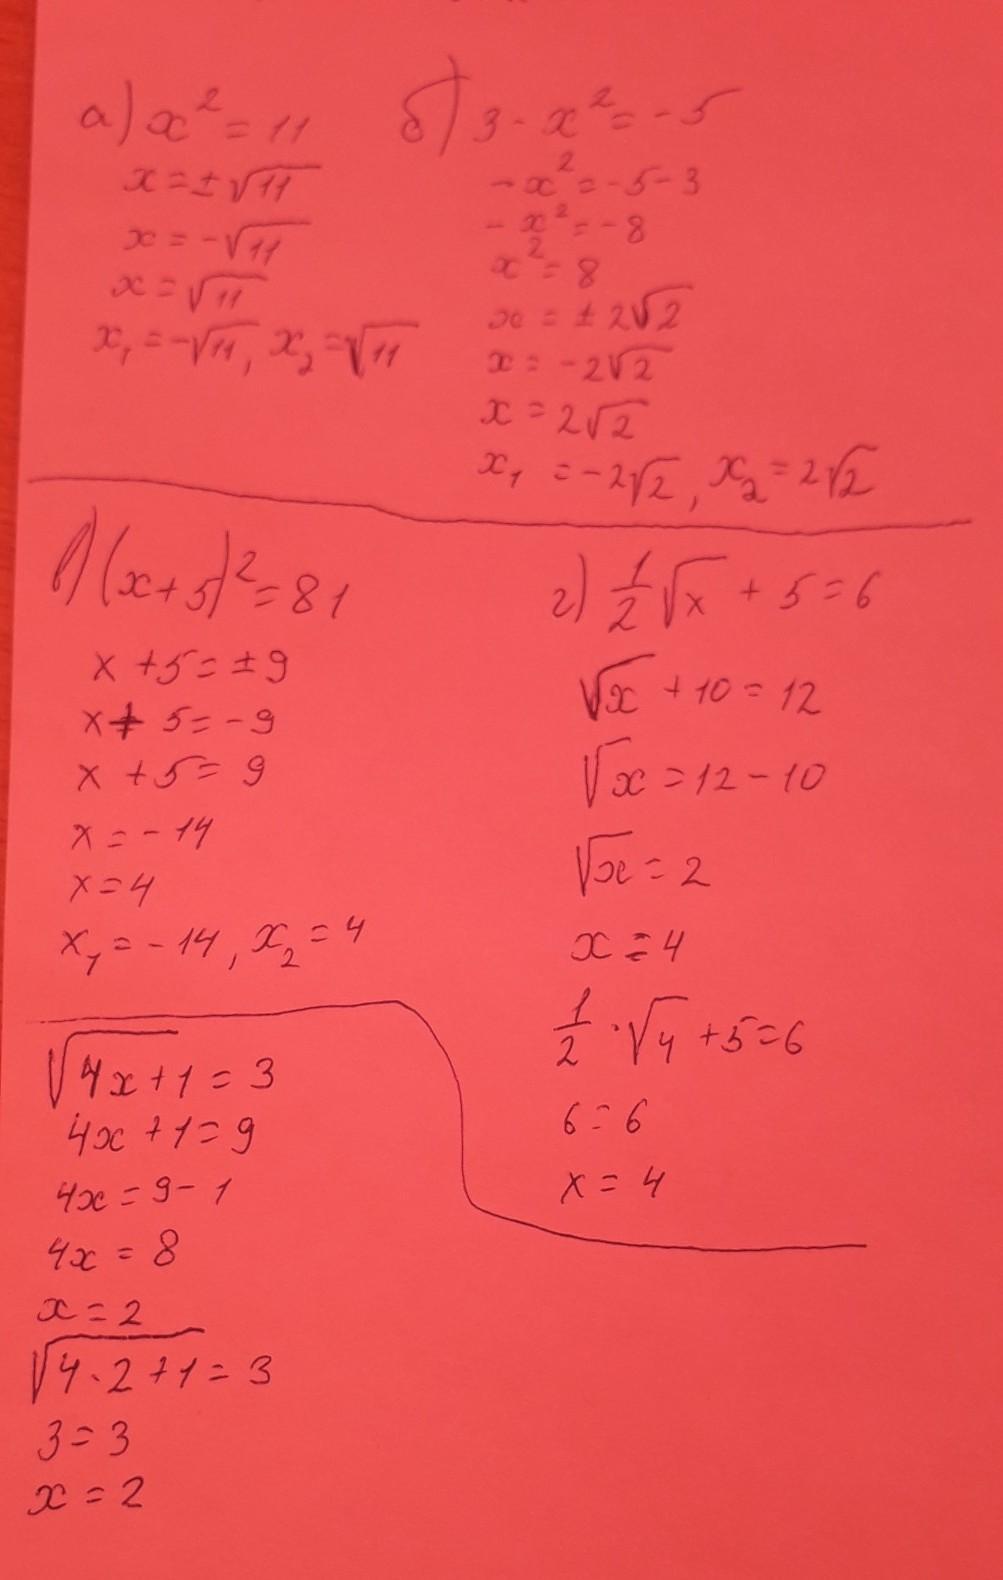 а) x² = 11
x = ±√11
x = -√11
x = √11
x₁ = -√11, x₂ = √11
б) 3 - x² = -5
-x² = -5-3
-x² = -8
x² = 8
x = ±2√2
x = -2√2
x = 2√2
x₁ = -2√2, x₂ = 2√2
в) (x+5)² = 81
x+5 = ±9
x+5 = -9
x+5 = 9
x = -14
x = 4
x₁ = -14, x₂ = 4
г) 1/2 √x + 5 = 6
√x + 10 = 12
√x = 12-10
√x = 2
x = 4
1/2 · √4 + 5 = 6
6 = 6
x = 4
√(4x+1) = 3
4x+1 = 9
4x = 9-1
4x = 8
x = 2
√(4·2+1) = 3
3 = 3
x = 2